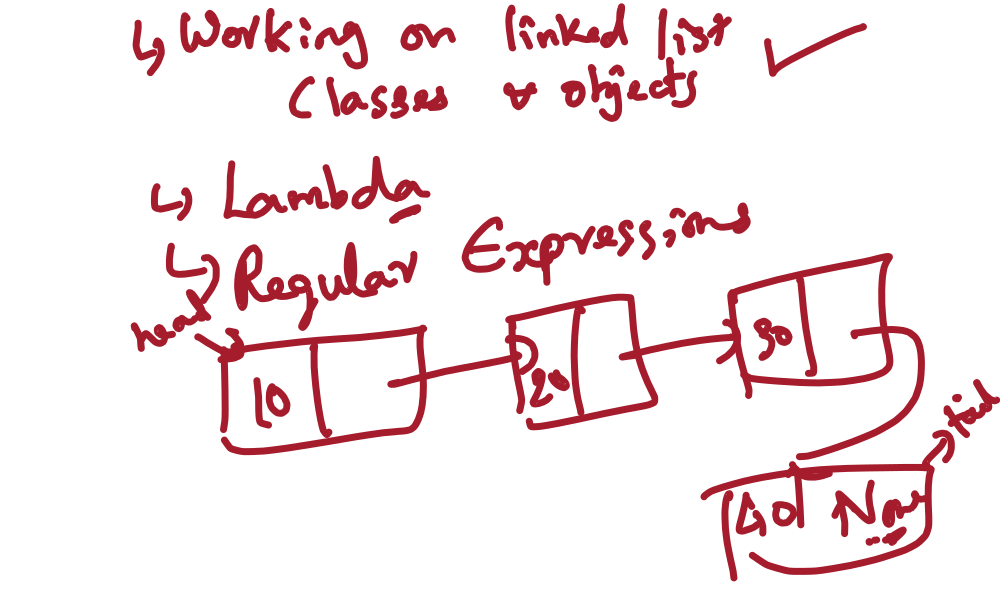 ↳ Working on linked list
Classes & objects
↳ Lambda
↳ Regular Expressions
head
10
20
30
40 None
tail